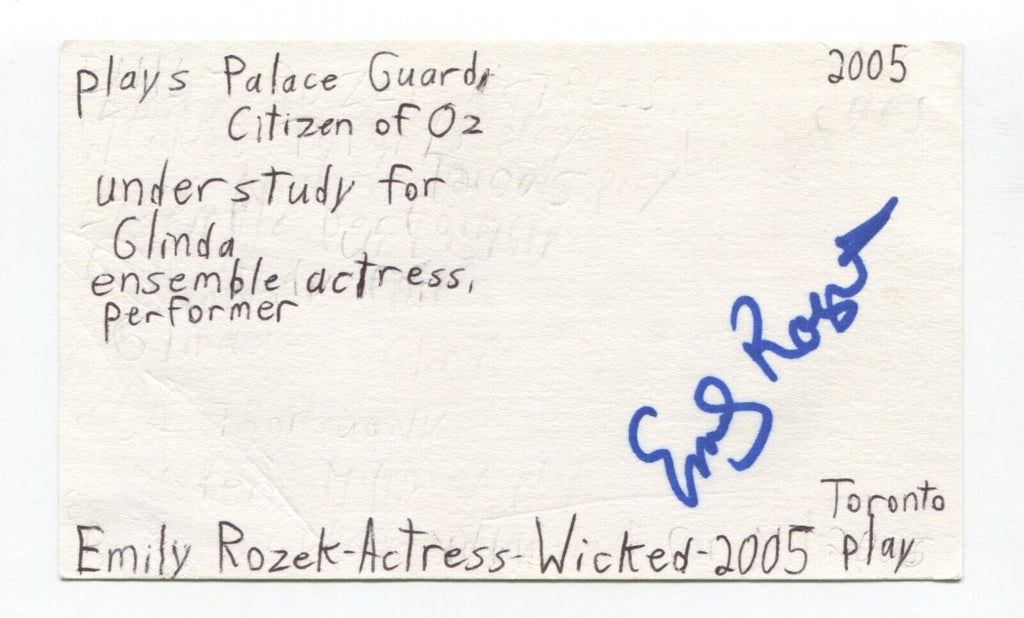 plays Palace Guard,
2005
Citizen of Oz
understudy for
Glinda
ensemble actress,
performer
Emily Rozek
Toronto
Emily Rozek-Actress-Wicked-2005 play